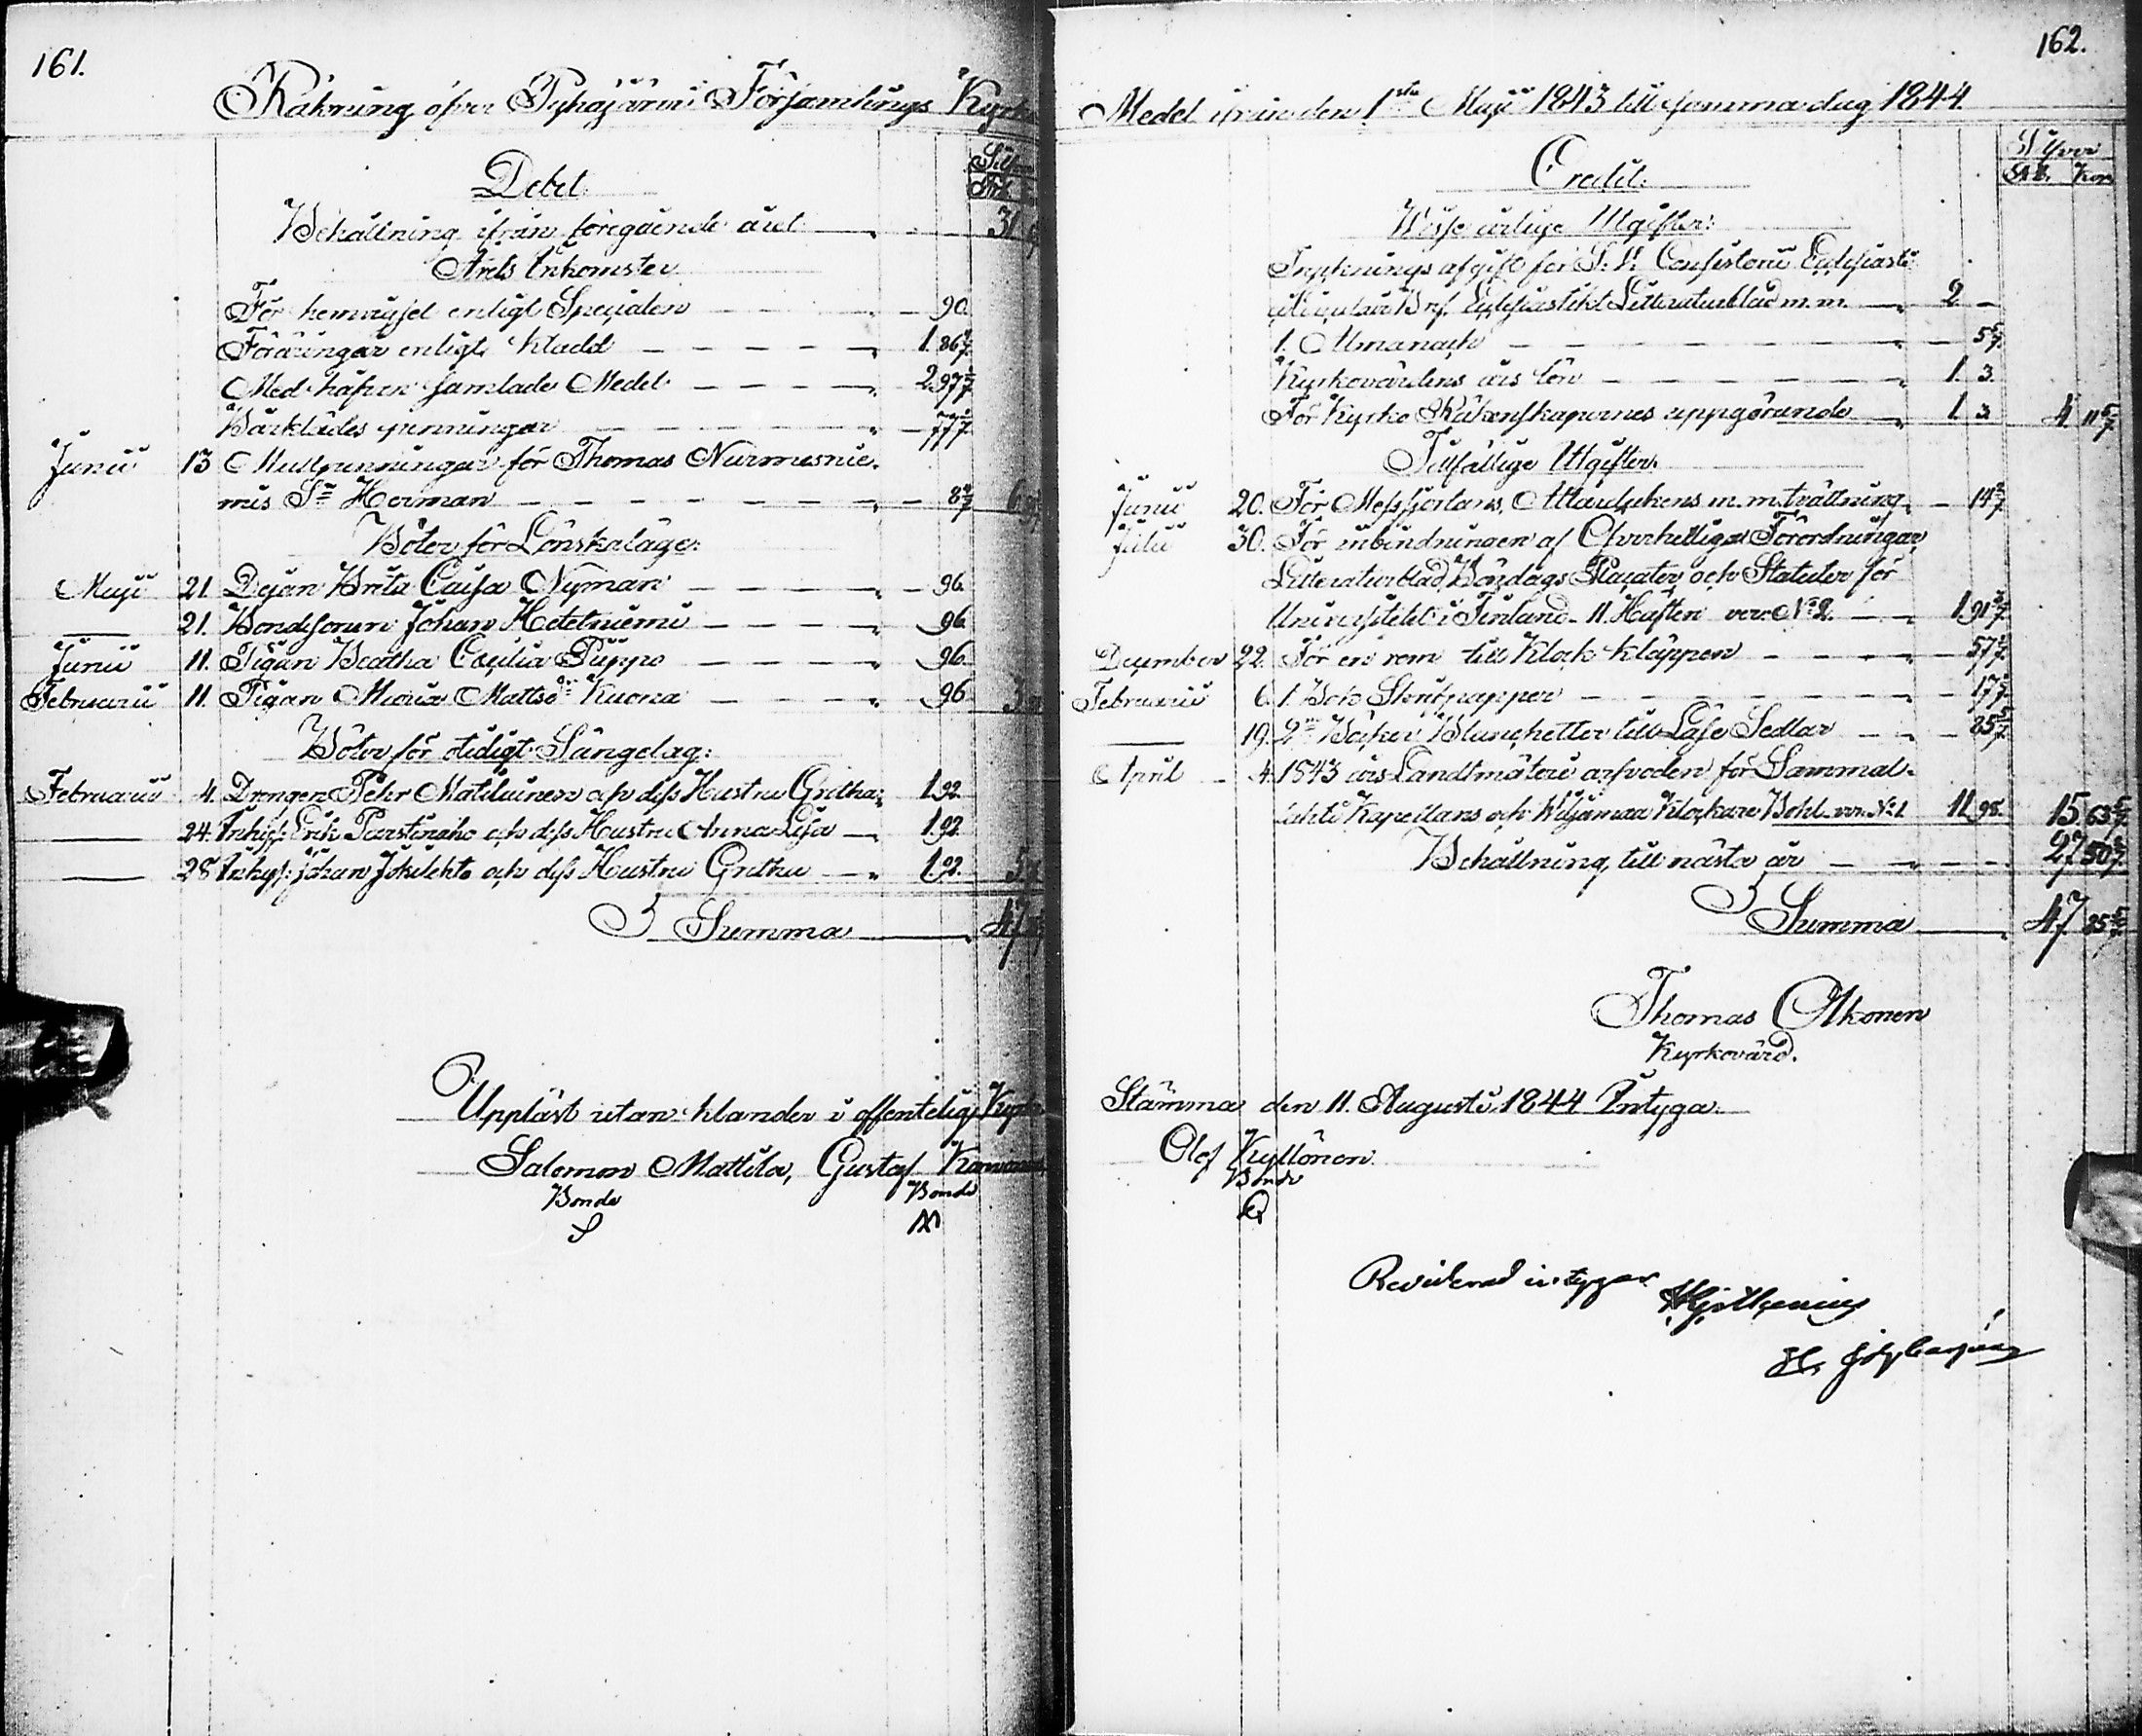 161.
Räkning öfver Pyhäjärvi Församlings Kyrko
Silfver
Debet.
Behållning ifrån föregående året 31
Årets Inkomster
För hemvijsel enligt Specialen 90.
Föräringar enligt Kladd 1. 86 4/7.
Med håfven samlade Medel 2. 97 1/7
Bårklädes penningar 77 1/7
Junii 13 Mullpenningar för Thomas Nurmesnie-
mis Sn Herman 8 4/7 6
Böter för Lönskaläge:
Maji 21. Pigan Brita Caisa Nyman 96.
21. Bondesonen Johan Hetetniemi 96.
Junii 11. Pigan Beatha Cecilia Puppo 96.
Februarii 11. Pigan Maria Mattsdr Kuona 96 3
Böter för otidigt Sängelag:
Februarii 4. Drengen Pehr Matiluinen och dess Hustru Gretha 1.92.
24. Inhys: Erik Parstinaho och dess Hustru Anna Lisa 1.92
28 Inhys: Johan Jokilehto och dess Hustru Gretha 1.92. 5
Summa 47
Uppläst utan klander i offentelig Kyrko
Salomon Mattila, Gustaf
Bonde Bonde
162.
Medel ifrån den 1sta Maji 1843 till samma dag 1844.
Silfver
Credit. Rub. Kop
Wisse årlige Utgifter:
Tryknings afgift för S: V. Consistorii Ecclesiasti
cirkulair Bref Ecclesiastikt Litteraturblad m.m. 2 —
1. Almanach 5 5/7.
Kyrkovärdens års lön 1. 3.
För Kyrko Räkenskapernes uppgörande 1. 3 4 11 5/7
Tillfällige Utgifter.
Junii 20. För Messsjortans, Altardukens m.m. tvättning 14 2/7
Julii 30. För inbindningen af Öfverhetliga Förordningar,
Litteraturblad, Böndags Placater och Statuter för
Universitetet i Finland 11. Häften ver: No 2. 1. 91 3/7.
December 22. För en rem till Klock kläppen 57 1/7.
Februarii 6. 1. Bok Skrifpapper 17 1/7
19. 2ne Böcker Blanchetter till Läse Sedlar 85 5/7
April 4. 1843 års Landtmäteri arfvoden för Sammal-
lahti Kapellans och Wiljamaa Klockare Bohl ver. No 1 11. 98. 15 63 5/7
Behållning till nästa år 27 50 2/7
Summa 47 25 5/7
Thomas Olkonen
Kyrkovärd.
Stämma den 11. Augusti 1844 Intyga.
Olof Kyllönen.
Bonde
Reviderad intygar